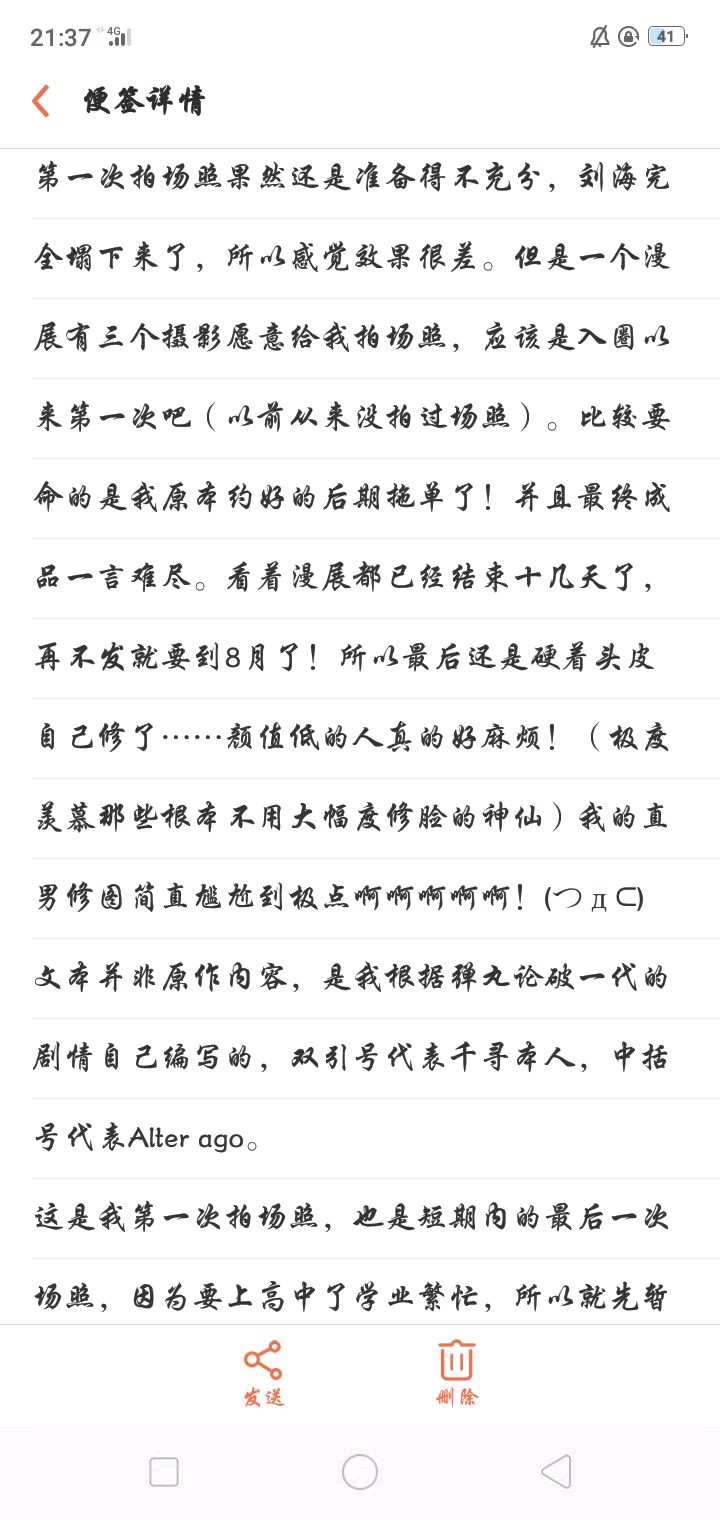 21:37 4G 41
便签详情
第一次拍场照果然还是准备得不充分，刘海完
全塌下来了，所以感觉效果很差。但是一个漫
展有三个摄影愿意给我拍场照，应该是入圈以
来第一次吧（以前从来没拍过场照）。比较要
命的是我原本约好的后期拖单了！并且最终成
品一言难尽。看着漫展都已经结束十几天了，
再不发就要到8月了！所以最后还是硬着头皮
自己修了……颜值低的人真的好麻烦！（极度
羡慕那些根本不用大幅度修脸的神仙）我的直
男修图简直尴尬到极点啊啊啊啊啊！(つд⊂)
文本并非原作内容，是我根据弹丸论破一代的
剧情自己编写的，双引号代表千寻本人，中括
号代表Alter ago。
这是我第一次拍场照，也是短期内的最后一次
场照，因为要上高中了学业繁忙，所以就先暂
发送 删除